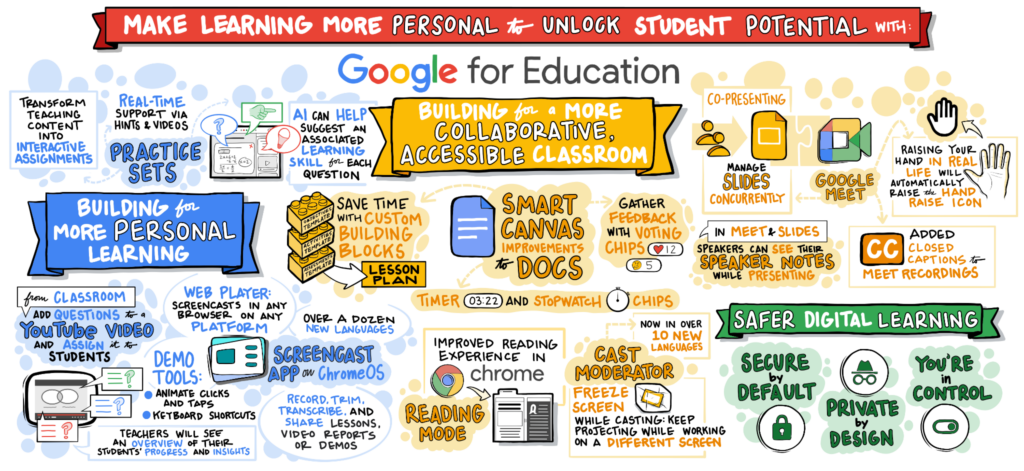 MAKE LEARNING MORE PERSONAL to UNLOCK STUDENT POTENTIAL WITH:
Google for Education
TRANSFORM
TEACHING
CONTENT
INTO
INTERACTIVE
ASSIGNMENTS
REAL-TIME
SUPPORT VIA
HINTS & VIDEOS
PRACTICE
SETS
?
AI CAN HELP
SUGGEST AN
ASSOCIATED
LEARNING
SKILL for EACH
QUESTION
BUILDING for
MORE PERSONAL
LEARNING
from CLASSROOM
ADD QUESTIONS to a
YouTube VIDEO
AND ASSIGN it to
STUDENTS
WEB PLAYER:
SCREENCASTS IN ANY
BROWSER ON ANY
PLATFORM
OVER A DOZEN
NEW LANGUAGES
SCREENCAST
APP on ChromeOS
DEMO
TOOLS:
ANIMATE CLICKS
AND TAPS
KEYBOARD SHORTCUTS
?
?
?
RECORD, TRIM,
TRANSCRIBE, AND
SHARE LESSONS,
VIDEO REPORTS
OR DEMOS
TEACHERS WILL SEE
AN OVERVIEW OF THEIR
STUDENTS' PROGRESS AND INSIGHTS
BUILDING for a MORE
COLLABORATIVE,
ACCESSIBLE CLASSROOM
TEMPLATE
TEMPLATE
TEMPLATE
SAVE TIME
WITH CUSTOM
BUILDING
BLOCKS
LESSON
PLAN
SMART
CANVAS
IMPROVEMENTS
to DOCS
GATHER
FEEDBACK
WITH VOTING
CHIPS
12
5
TIMER 03:22 AND STOPWATCH CHIPS
IMPROVED READING
EXPERIENCE IN
chrome
READING
MODE
A
NOW IN OVER
10 NEW
LANGUAGES
CAST
MODERATOR
FREEZE
SCREEN
WHILE CASTING: KEEP
PROJECTING WHILE WORKING
ON A DIFFERENT SCREEN
CO-PRESENTING
MANAGE
SLIDES
CONCURRENTLY
GOOGLE
MEET
RAISING YOUR
HAND IN REAL
LIFE WILL
AUTOMATICALLY
RAISE the HAND
RAISE ICON
IN MEET & SLIDES
SPEAKERS CAN SEE THEIR
SPEAKER NOTES
WHILE PRESENTING
CC
ADDED
CLOSED
CAPTIONS to
MEET RECORDINGS
SAFER DIGITAL LEARNING
SECURE
by
DEFAULT
PRIVATE
by
DESIGN
YOU'RE
in
CONTROL